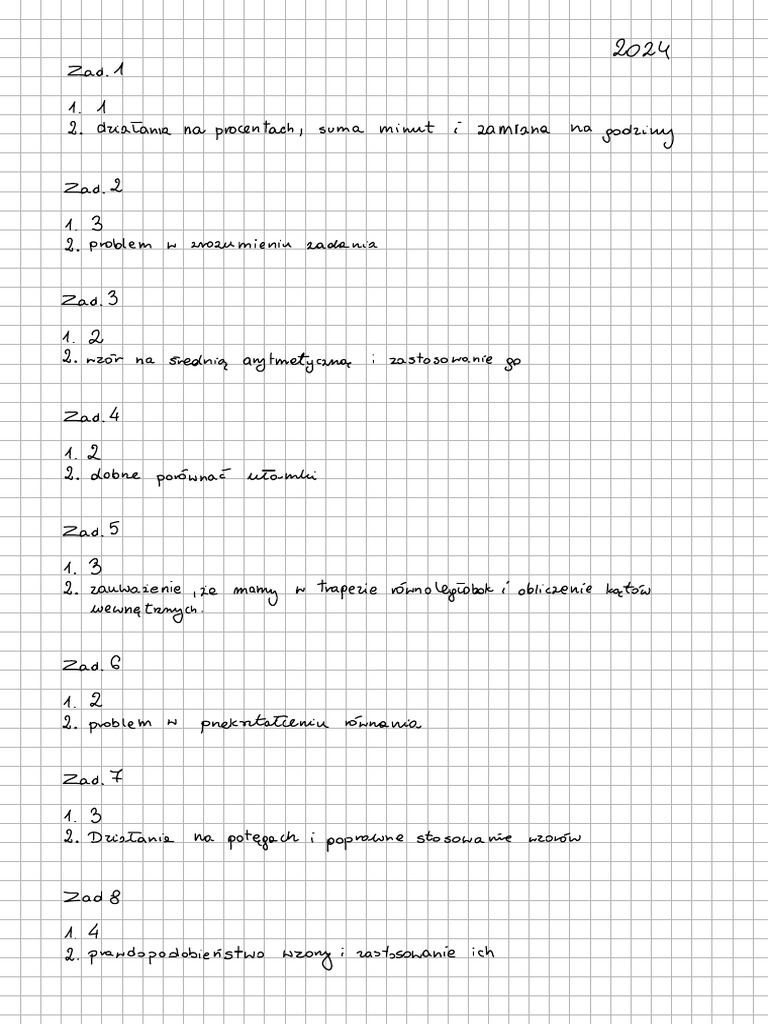 2024
Zad. 1
1. 1
2. działania na procentach, suma minut i zamiana na godziny
Zad. 2
1. 3
2. problem w zrozumieniu zadania
Zad. 3
1. 2
2. wzór na średnią arytmetyczną i zastosowanie go
Zad. 4
1. 2
2. dobrze porównać ułamki
Zad. 5
1. 3
2. zauważenie, że mamy w trapezie równoległobok i obliczenie kątów
wewnętrznych.
Zad. 6
1. 2
2. problem w przekształceniu równania
Zad. 7
1. 3
2. Działanie na potęgach i poprawne stosowanie wzorów
Zad 8
1. 4
2. prawdopodobieństwo wzory i zastosowanie ich